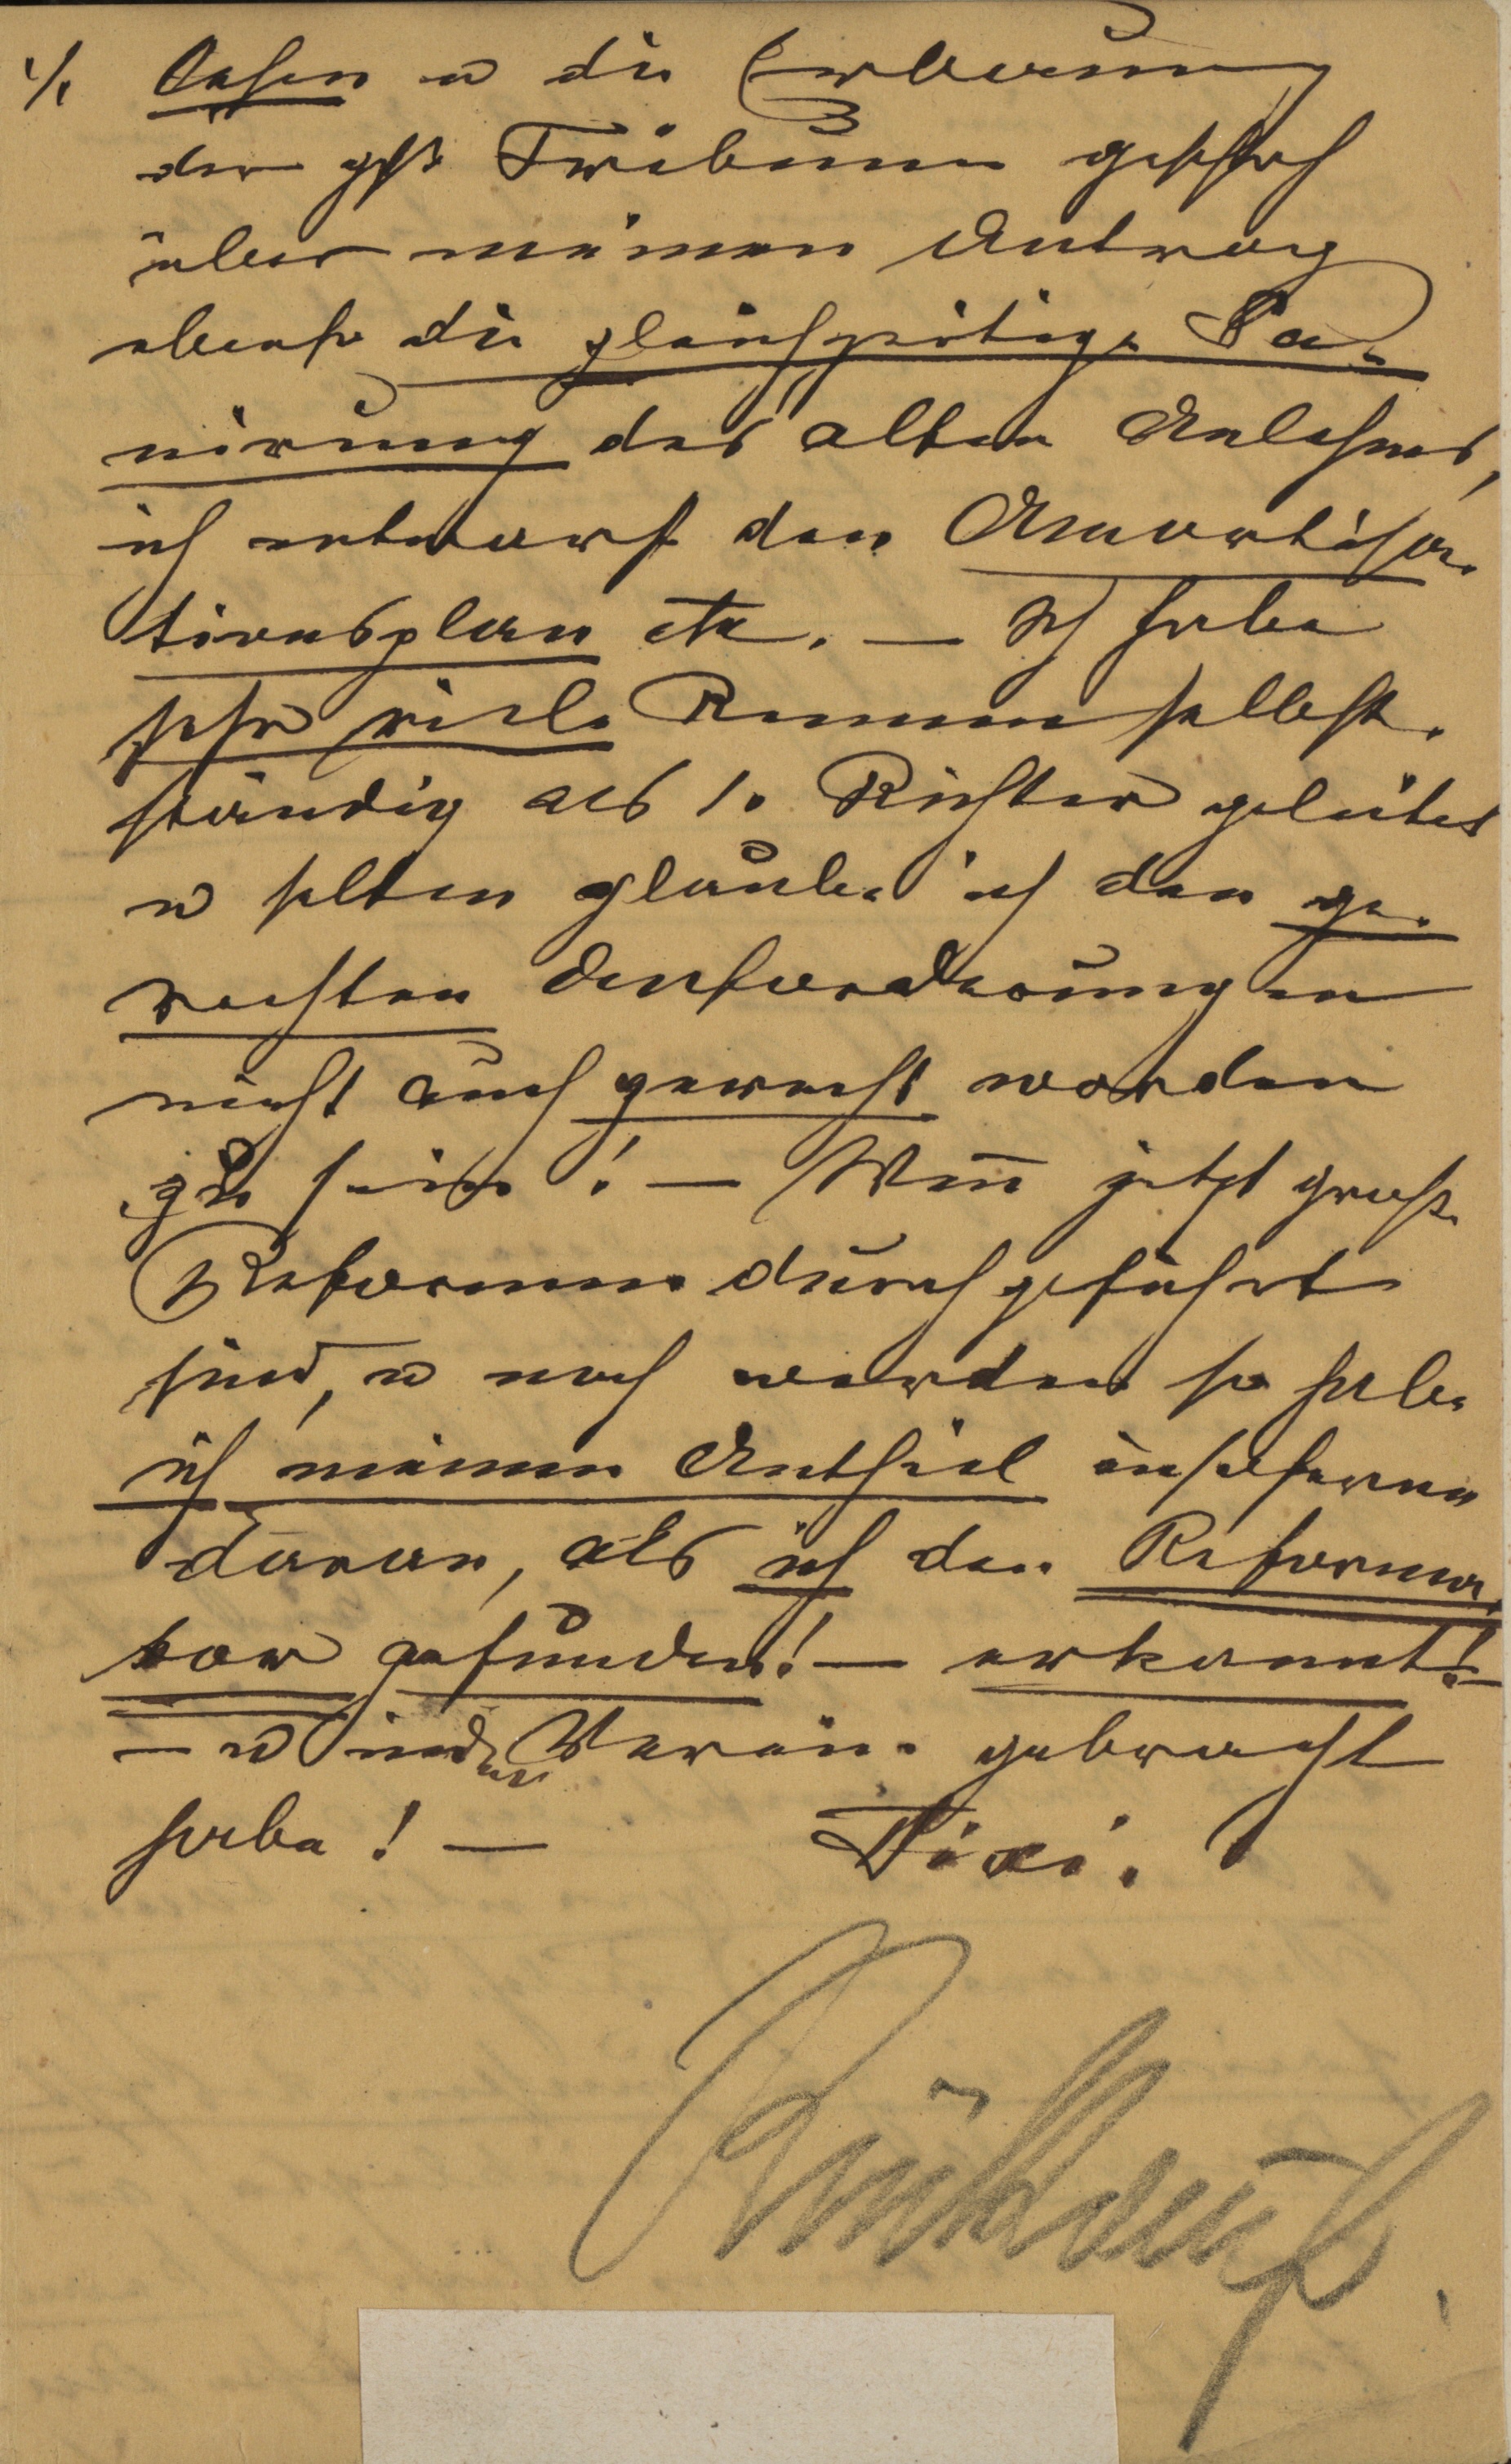 ./. Casse u die Erbauung
der gßn Tribünen geschah
über meinen Antrag
ebenso die gleichzeitige Sa-
nirung des alten Anlehens,
ich entwarf den Amortisa-
tionsplan etc. — Ich habe
sehr viele Rennen selbst-
ständig als 1. Richter geleitet
u selten glaube ich den ge-
rechten Anforderungen
nicht auch gerecht worden
zu sein! — Wen̅ jetzt große
Reformen durchgeführt
sind, u noch werden so habe
ich meinen Antheil insoferne
daran, als ich den Reforma-
tor gefunden! — erkannt! —
— u in den Verein gebracht
habe! — Dixi.